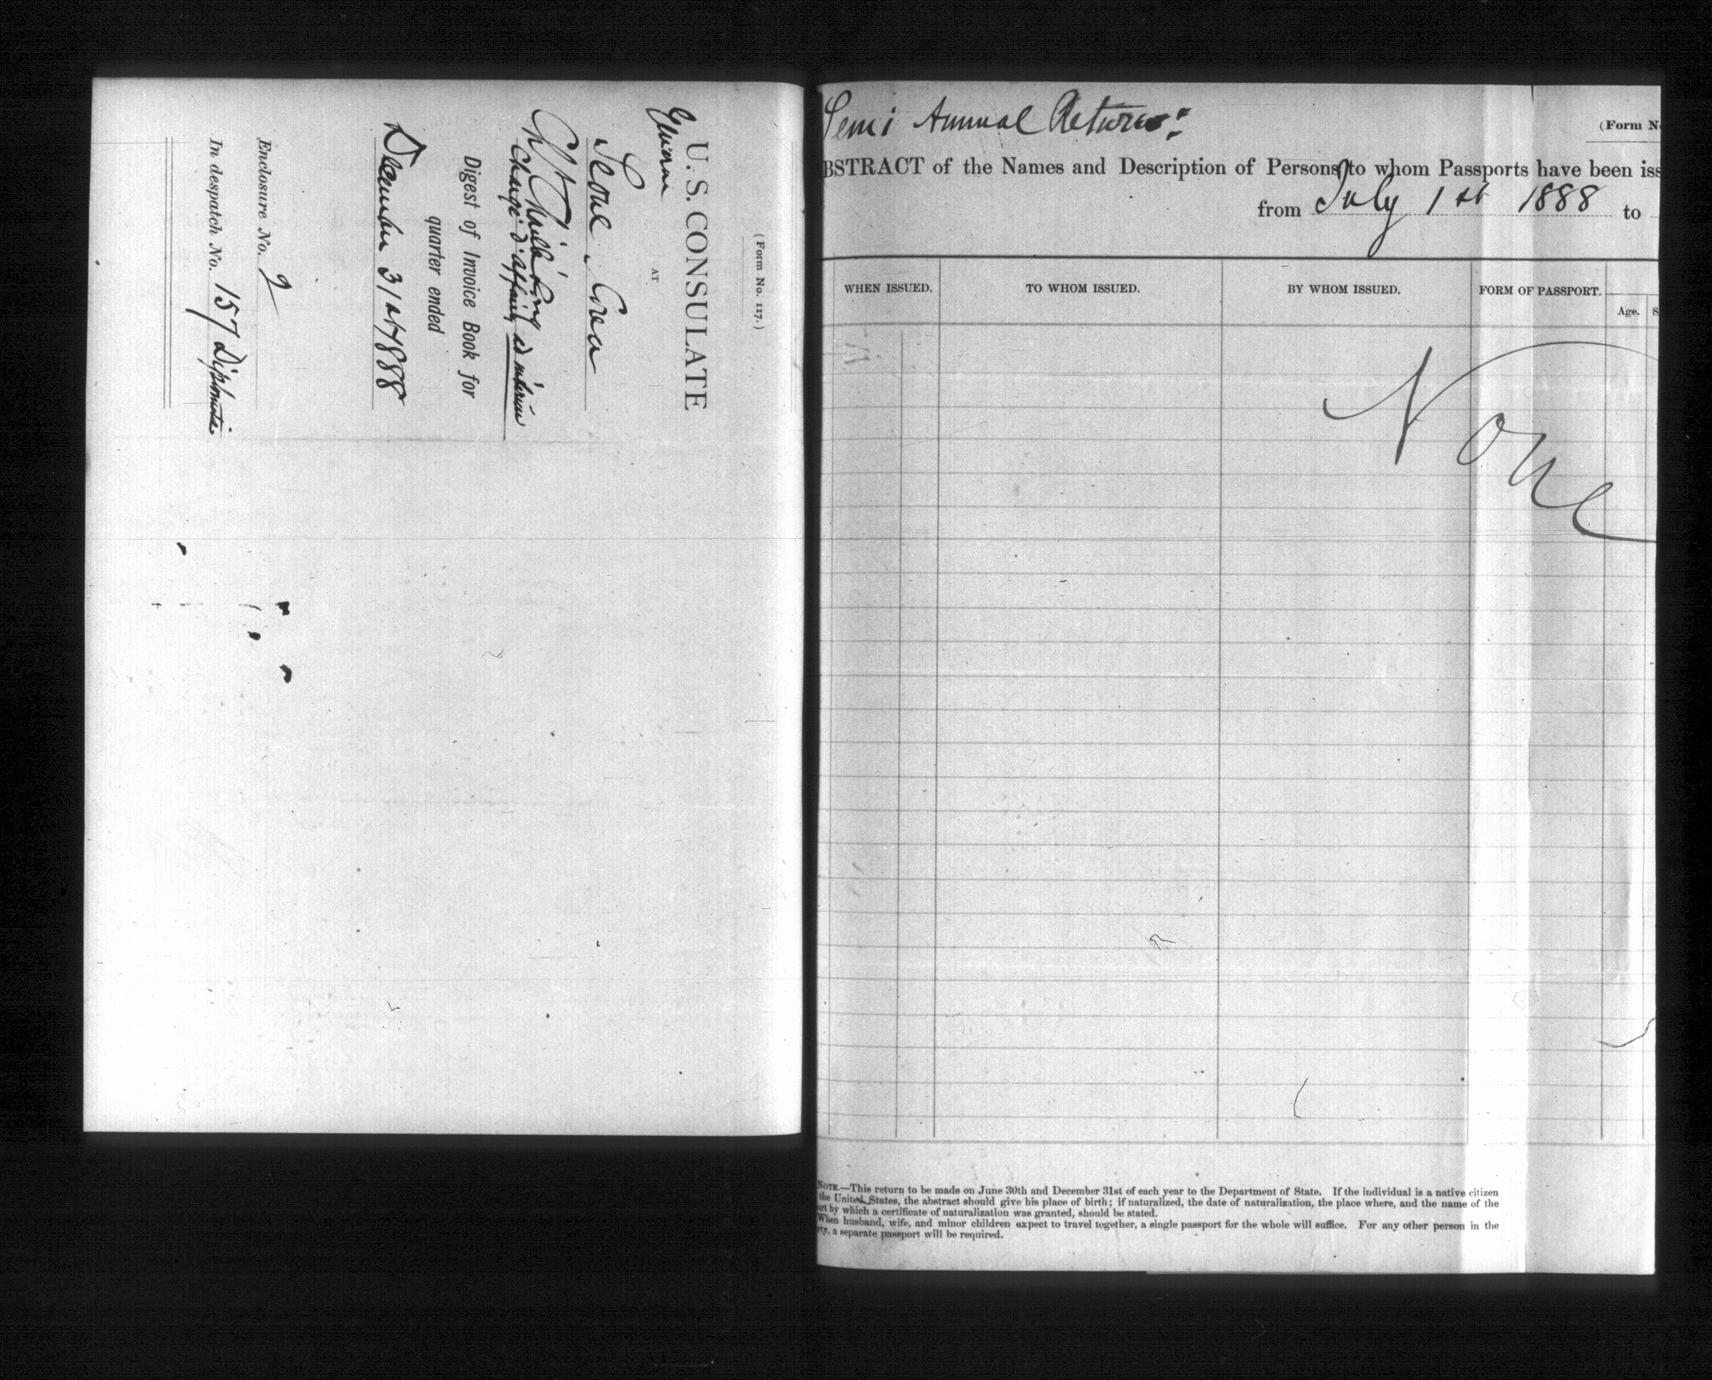 (Form No. 117.)
U. S. CONSULATE
AT
Seoul Corea
Chargé d'affaires ad interim
Digest of Invoice Book for
quarter ended
December 31st 1888
Enclosure No. 2
In despatch No. 157 Diplomatic
Semi Annual Returns:
(Form N
BSTRACT of the Names and Description of Persons to whom Passports have been iss
from July 1st 1888 to
WHEN ISSUED.
TO WHOM ISSUED.
BY WHOM ISSUED.
FORM OF PASSPORT.
Age.
S
None
NOTE.—This return to be made on June 30th and December 31st of each year to the Department of State. If the individual is a native citizen
the United States, the abstract should give his place of birth; if naturalized, the date of naturalization, the place where, and the name of the
urt by which a certificate of naturalization was granted, should be stated.
When husband, wife, and minor children expect to travel together, a single passport for the whole will suffice. For any other person in the
rty, a separate passport will be required.